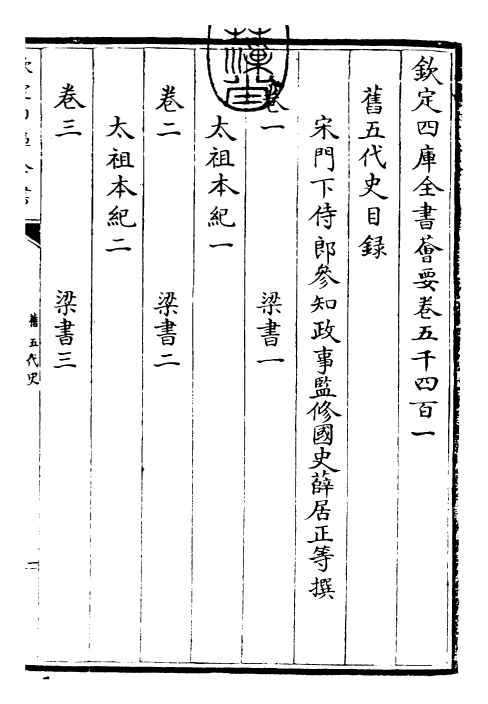 欽定四庫全書薈要卷五千四百一
舊五代史目録
宋門下侍郎參知政事監修國史薛居正等撰
卷一 梁書一
太祖本紀一
卷二 梁書二
太祖本紀二
卷三 梁書三
舊五代史
一